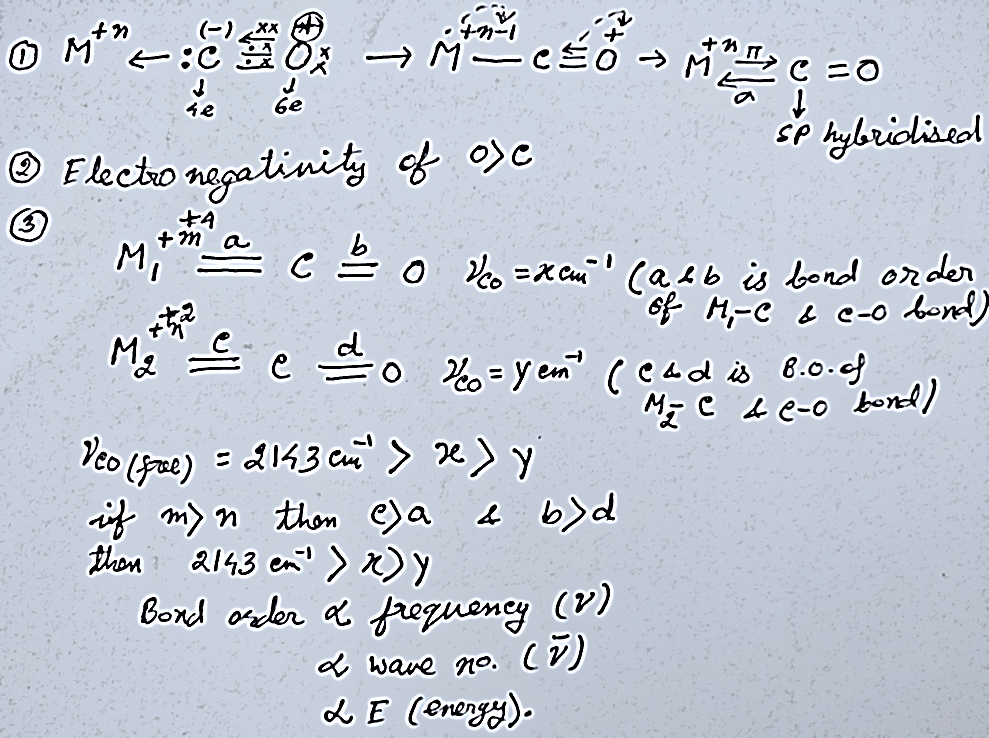 ① M⁺ⁿ ← :C⁽⁻⁾ ≡ O⁺ → M⁺ⁿ⁻¹ — C ≡ O⁺ → M⁺ⁿ ⇌ C = O
4e 6e π a
SP hybridised
② Electronegativity of O>C
③
M₁⁺ᵐ ⁺⁴ =a= C =b= O ν_CO = x cm⁻¹ (a & b is bond order
of M₁-C & C-O bond)
M₂⁺ⁿ ⁺² =c= C =d= O ν_CO = y cm⁻¹ (c & d is B.O. of
M₂-C & C-O bond)
ν_CO (free) = 2143 cm⁻¹ > x > y
if m>n then c>a & b>d
then 2143 cm⁻¹ > x>y
Bond order α frequency (ν)
α wave no. (ν̄)
α E (energy).